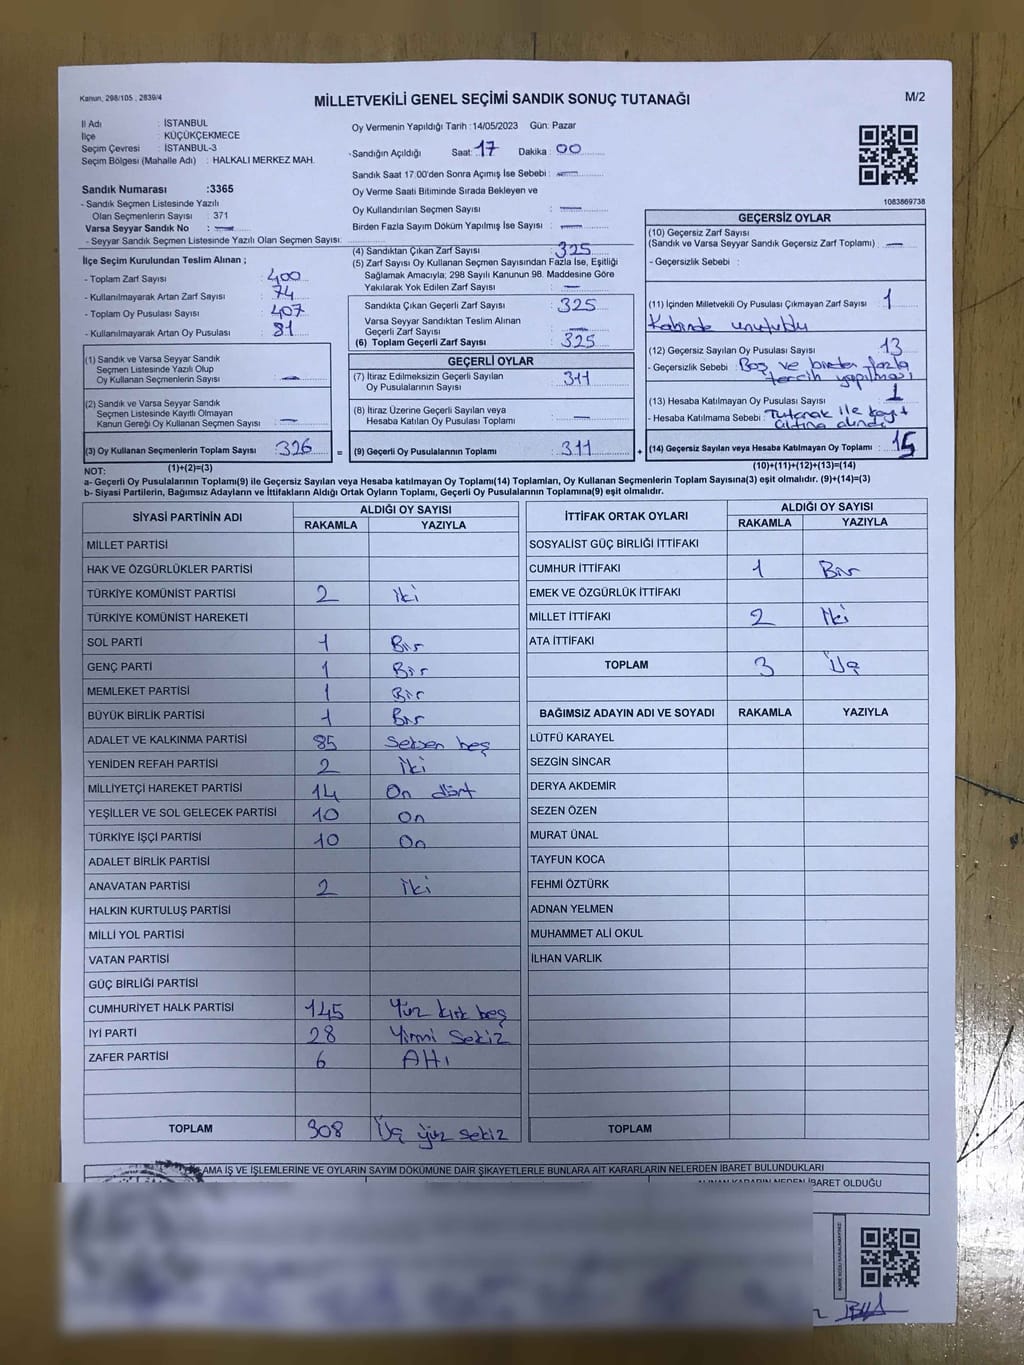 Kanun, 298/105 , 2839/4
MİLLETVEKİLİ GENEL SEÇİMİ SANDIK SONUÇ TUTANAĞI
M/2
İl Adı : İSTANBUL
İlçe : KÜÇÜKÇEKMECE
Seçim Çevresi : İSTANBUL-3
Seçim Bölgesi (Mahalle Adı) : HALKALI MERKEZ MAH.
Sandık Numarası :3365
- Sandık Seçmen Listesinde Yazılı
Olan Seçmenlerin Sayısı : 371
Varsa Seyyar Sandık No : —
- Seyyar Sandık Seçmen Listesinde Yazılı Olan Seçmen Sayısı:
İlçe Seçim Kurulundan Teslim Alınan ;
- Toplam Zarf Sayısı : 400
- Kullanılmayarak Artan Zarf Sayısı : 74
- Toplam Oy Pusulası Sayısı : 407
- Kullanılmayarak Artan Oy Pusulası : 81
(1) Sandık ve Varsa Seyyar Sandık
Seçmen Listesinde Yazılı Olup
Oy Kullanan Seçmenlerin Sayısı : —
(2) Sandık ve Varsa Seyyar Sandık
Seçmen Listesinde Kayıtlı Olmayan
Kanun Gereği Oy Kullanan Seçmen Sayısı : —
(3) Oy Kullanan Seçmenlerin Toplam Sayısı : 326
Oy Vermenin Yapıldığı Tarih :14/05/2023 Gün: Pazar
-Sandığın Açıldığı Saat: 17 Dakika : 00
Sandık Saat 17:00'den Sonra Açımış İse Sebebi : —
Oy Verme Saati Bitiminde Sırada Bekleyen ve
Oy Kullandırılan Seçmen Sayısı : —
Birden Fazla Sayım Döküm Yapılmış İse Sayısı : —
(4) Sandıktan Çıkan Zarf Sayısı : 325
(5) Zarf Sayısı Oy Kullanan Seçmen Sayısından Fazla İse, Eşitliği
Sağlamak Amacıyla; 298 Sayılı Kanunun 98. Maddesine Göre
Yakılarak Yok Edilen Zarf Sayısı : —
Sandıkta Çıkan Geçerli Zarf Sayısı : 325
Varsa Seyyar Sandıktan Teslim Alınan
Geçerli Zarf Sayısı : —
(6) Toplam Geçerli Zarf Sayısı : 325
GEÇERLİ OYLAR
(7) İtiraz Edilmeksizin Geçerli Sayılan
Oy Pusulalarının Sayısı : 311
(8) İtiraz Üzerine Geçerli Sayılan veya
Hesaba Katılan Oy Pusulası Toplamı : —
= (9) Geçerli Oy Pusulalarının Toplamı : 311 +
1083869738
GEÇERSİZ OYLAR
(10) Geçersiz Zarf Sayısı
(Sandık ve Varsa Seyyar Sandık Geçersiz Zarf Toplamı) : —
- Geçersizlik Sebebi :
(11) İçinden Milletvekili Oy Pusulası Çıkmayan Zarf Sayısı : 1
Kabinde unutuldu
(12) Geçersiz Sayılan Oy Pusulası Sayısı : 13
- Geçersizlik Sebebi : Boş ve birden fazla
tercih yapılması
(13) Hesaba Katılmayan Oy Pusulası Sayısı : 1
- Hesaba Katılmama Sebebi : Tutanak ile kayıt
altına alındı
(14) Geçersiz Sayılan veya Hesaba Katılmayan Oy Toplamı : 15
NOT: (1)+(2)=(3) (10)+(11)+(12)+(13)=(14)
a- Geçerli Oy Pusulalarının Toplamı(9) ile Geçersiz Sayılan veya Hesaba katılmayan Oy Toplamı(14) Toplamları, Oy Kullanan Seçmenlerin Toplam Sayısına(3) eşit olmalıdır. (9)+(14)=(3)
b- Siyasi Partilerin, Bağımsız Adayların ve İttifakların Aldığı Ortak Oyların Toplamı, Geçerli Oy Pusulalarının Toplamına(9) eşit olmalıdır.
SİYASİ PARTİNİN ADI ALDIĞI OY SAYISI
RAKAMLA YAZIYLA
MİLLET PARTİSİ
HAK VE ÖZGÜRLÜKLER PARTİSİ
TÜRKİYE KOMÜNİST PARTİSİ 2 iki
TÜRKİYE KOMÜNİST HAREKETİ
SOL PARTİ 1 Bir
GENÇ PARTİ 1 Bir
MEMLEKET PARTİSİ 1 Bir
BÜYÜK BİRLİK PARTİSİ 1 Bir
ADALET VE KALKINMA PARTİSİ 85 Seksen beş
YENİDEN REFAH PARTİSİ 2 iki
MİLLİYETÇİ HAREKET PARTİSİ 14 On dört
YEŞİLLER VE SOL GELECEK PARTİSİ 10 On
TÜRKİYE İŞÇİ PARTİSİ 10 On
ADALET BİRLİK PARTİSİ
ANAVATAN PARTİSİ 2 iki
HALKIN KURTULUŞ PARTİSİ
MİLLİ YOL PARTİSİ
VATAN PARTİSİ
GÜÇ BİRLİĞİ PARTİSİ
CUMHURİYET HALK PARTİSİ 145 Yüz kırk beş
İYİ PARTİ 28 Yirmi Sekiz
ZAFER PARTİSİ 6 Altı
TOPLAM 308 Üç yüz sekiz
İTTİFAK ORTAK OYLARI ALDIĞI OY SAYISI
RAKAMLA YAZIYLA
SOSYALİST GÜÇ BİRLİĞİ İTTİFAKI
CUMHUR İTTİFAKI 1 Bir
EMEK VE ÖZGÜRLÜK İTTİFAKI
MİLLET İTTİFAKI 2 İki
ATA İTTİFAKI
TOPLAM 3 Üç
BAĞIMSIZ ADAYIN ADI VE SOYADI RAKAMLA YAZIYLA
LÜTFÜ KARAYEL
SEZGİN SİNCAR
DERYA AKDEMİR
SEZEN ÖZEN
MURAT ÜNAL
TAYFUN KOCA
FEHMİ ÖZTÜRK
ADNAN YELMEN
MUHAMMET ALİ OKUL
İLHAN VARLIK
TOPLAM
AMA İŞ VE İŞLEMLERİNE VE OYLARIN SAYIM DÖKÜMÜNE DAİR ŞİKAYETLERLE BUNLARA AİT KARARLARIN NELERDEN İBARET BULUNDUKLARI
ALINAN KARARIN NEDEN İBARET OLDUĞU